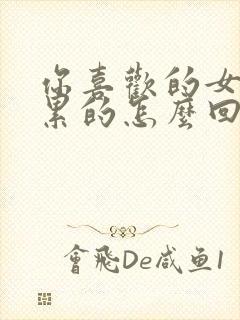 你喜歡的女
累的怎麼回
會飛De咸鱼1